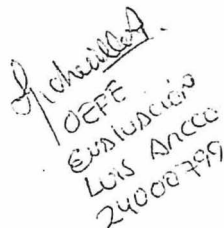 OEFE
Evaluación
Luis Arcco
24000799